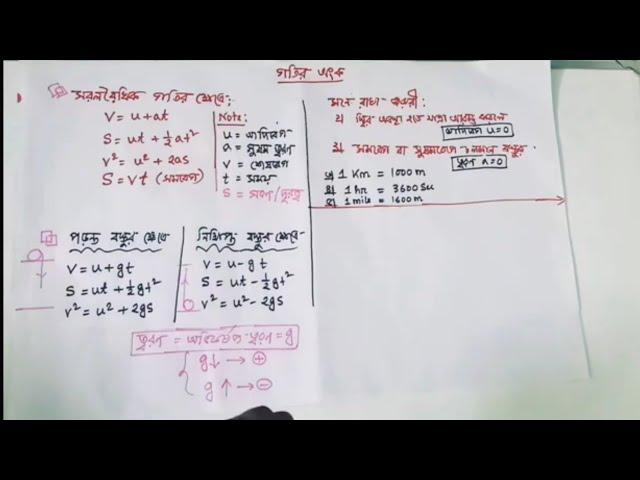 গতির অংক
সরলরৈখিক গতির ক্ষেত্রে:
V = u + at
S = ut + ½ at²
v² = u² + 2as
S = vt (সমবেগ)
Note:
u = আদিবেগ
a = সুষম ত্বরণ
v = শেষবেগ
t = সময়
S = সরণ/দূরত্ব
মনে রাখা জরুরী:
১) স্থির অবস্থা হতে যাত্রা আরম্ভ করলে
আদিবেগ u=0
২) সমবেগ বা সুষমবেগে চলমান বস্তুর
ত্বরণ a=0
1 Km = 1000 m
1 hr = 3600 Sec
1 mile = 1600 m
পড়ন্ত বস্তুর ক্ষেত্রে
V = u + gt
S = ut + ½ gt²
v² = u² + 2gs
নিক্ষিপ্ত বস্তুর ক্ষেত্রে-
V = u - gt
S = ut - ½ gt²
v² = u² - 2gs
ত্বরণ = অভিকর্ষজ ত্বরণ = g
g↓ → ⊕
g ↑ → ⊖